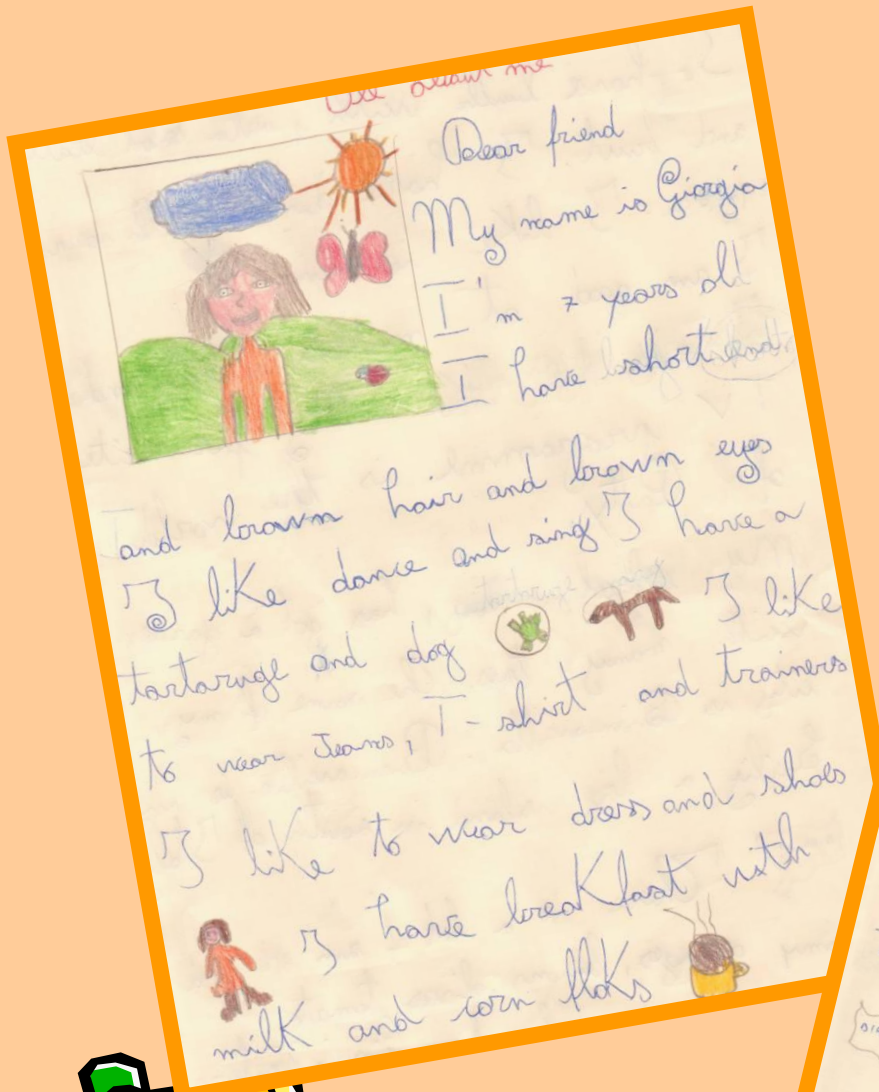 All about me
Dear friend
My name is Giorgia
I'm 7 years old
I have short
and brown hair and brown eyes
I like dance and sing I have a
tartaruge and dog I like
to wear Jeans, T-shirt and trainers
I like to wear dress and shoes
I have breakfast with
milk and corn flaks